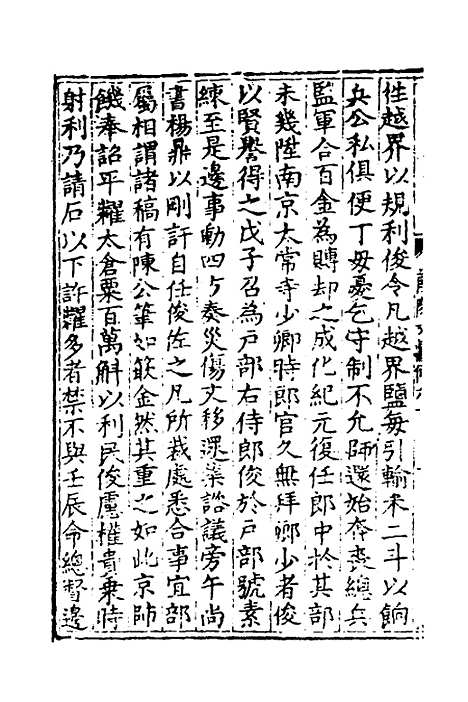 性越界以規利俊令凡越界鹽每引輸米二斗以餉
兵公私俱便丁母憂乞守制不允師還始奔喪總兵
監軍合百金為賻却之成化紀元復任郎中於其部
未幾陞南京太常寺少卿時郎官久無拜卿少者俊
以賢譽得之戊子召為戸部右侍郎俊於戸部號素
練至是邊事動四方奏災傷文移深業諮議旁午尚
書楊鼎以剛訐自任俊佐之凡所裁處悉合事宜部
屬相謂諸稿有陳公筆如嵌金然其重之如此京師
饑奉詔平糶太倉粟百萬斛以利民俊慮權貴乘時
射利乃請石以下許糶多者禁不與壬辰命總督邊